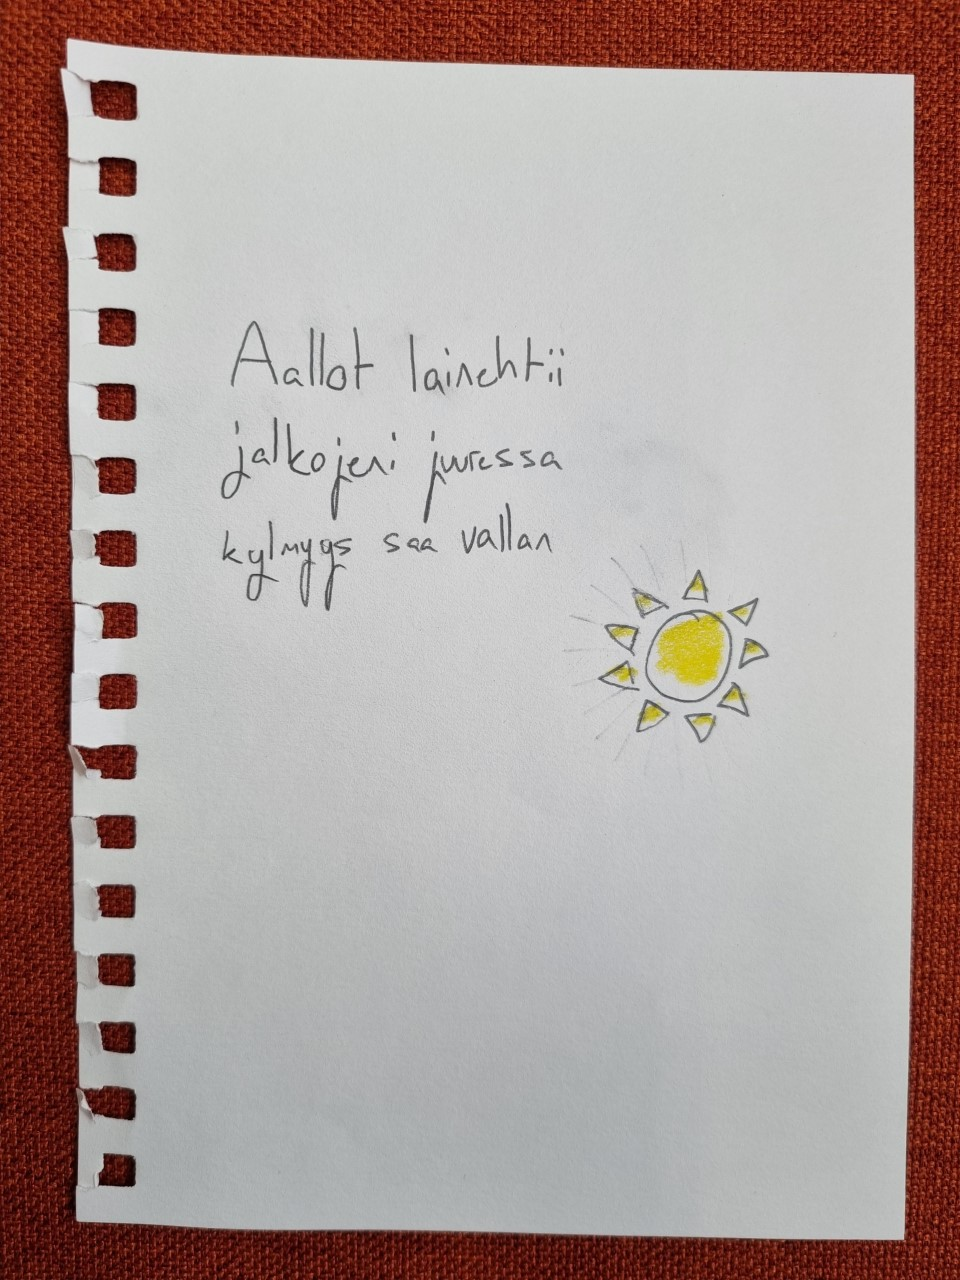 Aallot lainehtii
jalkojeni juuressa
kylmyys saa vallan